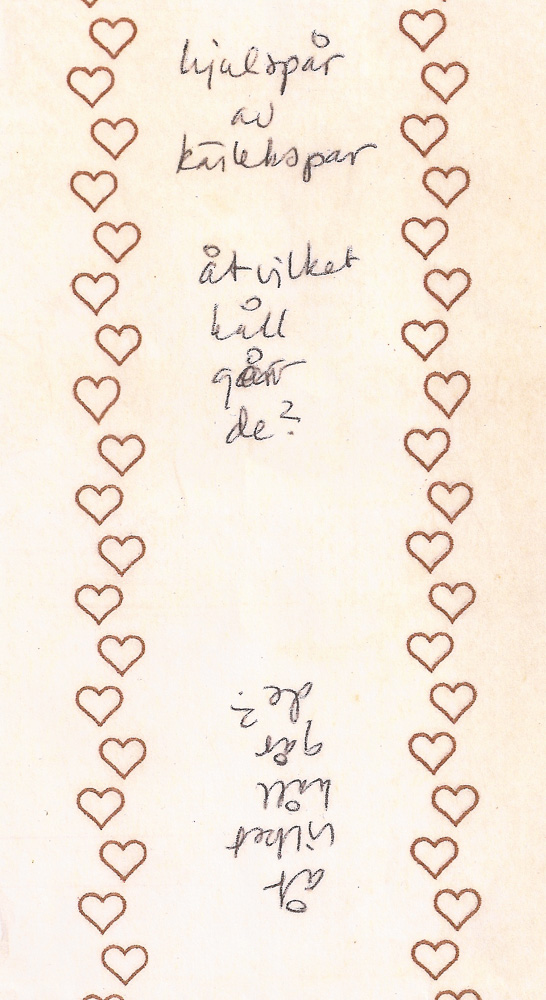 hjulspår
av
kärlekspar
åt vilket
håll
går
de?
åt
vilket
håll
går
de?